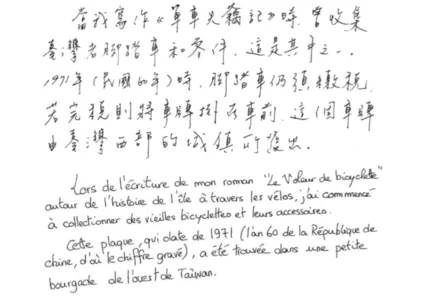 當我寫作《單車失竊記》時,曾收集
臺灣老腳踏車和零件,這是其中之一。
1971年(民國60年)時,腳踏車仍須繳稅,
若完稅則將車牌掛在車前,這個車牌
由臺灣西部的城鎮所發出。
Lors de l'écriture de mon roman "Le Voleur de bicyclette"
autour de l'histoire de l'île à travers les vélos, j'ai commencé
à collectionner des vieilles bicyclettes et leurs accessoires.
Cette plaque, qui date de 1971 (l'an 60 de la République de
chine, d'où le chiffre gravé), a été trouvée dans une petite
bourgade de l'ouest de Taïwan.